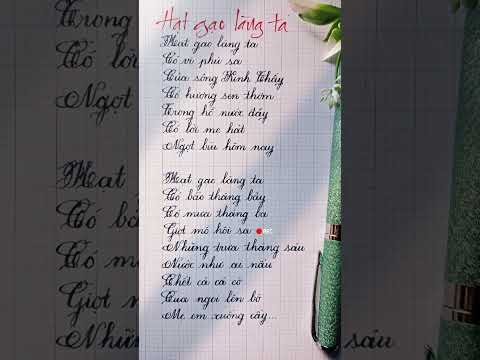 Hạt gạo làng ta
Hạt gạo làng ta
Có vị phù sa
Của sông Kinh Thầy
Có hương sen thơm
Trong hồ nước đầy
Có lời mẹ hát
Ngọt bùi hôm nay
Hạt gạo làng ta
Có bão tháng bảy
Có mưa tháng ba
Giọt mồ hôi sa
Những trưa tháng sáu
Nước như ai nấu
Chết cả cá cờ
Cua ngoi lên bờ
Mẹ em xuống cấy...